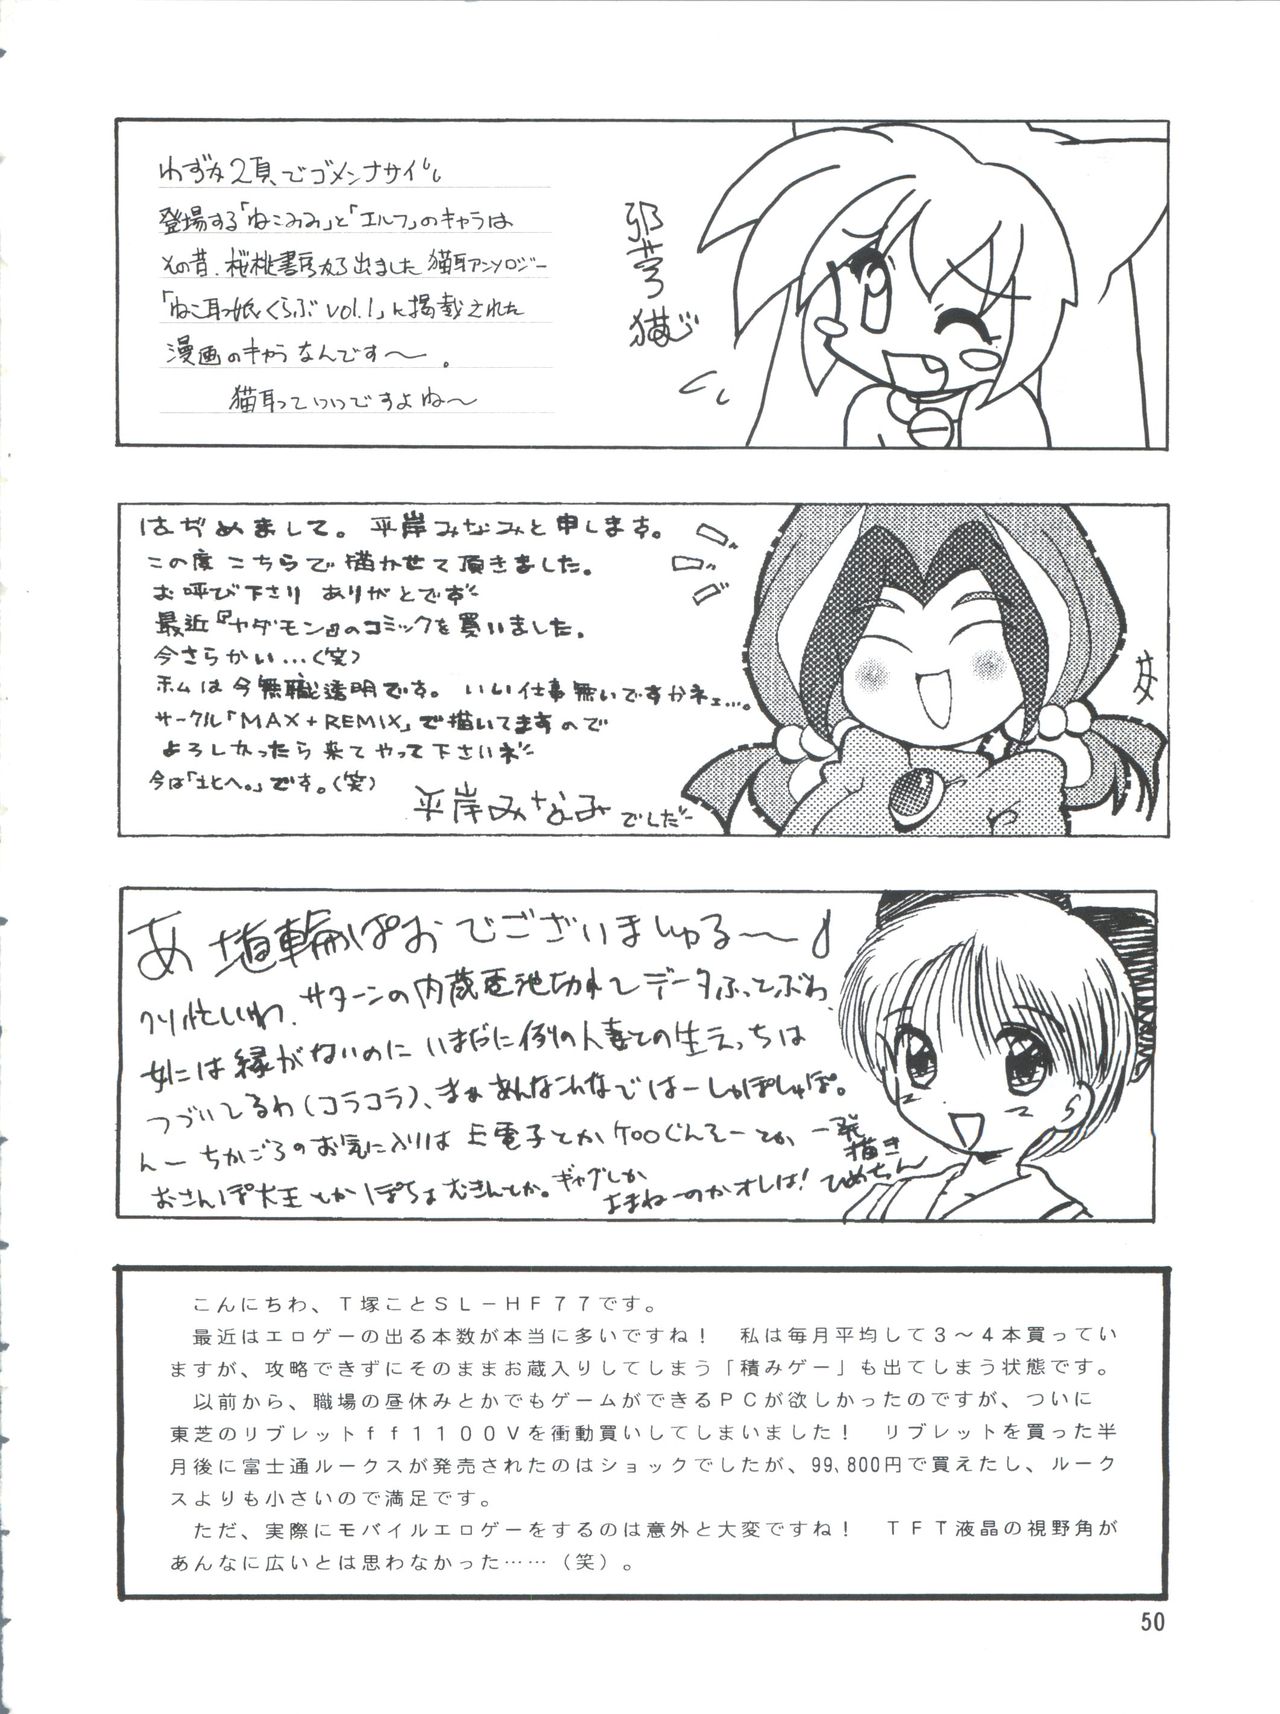 わずか2頁でゴメンナサイ
登場する「ねこみみ」と「エルフ」のキャラは
その昔、桜桃書房から出ました猫耳アンソロジー
「ねこ耳っ娘くらぶ vol.1」に掲載された
漫画のキャラなんです〜。
猫耳っていいですよね〜
はぢめまして。平岸みなみと申します。
この度こちらで描かせて頂きました。
お呼び下さりありがとです
最近『ヤダモン』のコミックを買いました。
今さらかい…(笑)
ホムは今無職透明です。いい仕事無いですかネェ…。
サークル「MAX+REMIX」で描いてますので
よろしかったら来てやって下さいネ
今は「北へ。」です。(笑)
平岸みなみでした
あ 埴輪ぱおでございましゅる〜♪
忙しいわ、サターンの内蔵電池切れてデータふっとぶわ、
女には縁がないのにいまだに例の人妻との生えっちは
つづいてるわ(コラコラ)、まぁあんなこんなではーしゅぽしゅぽ。
んーちかごろのお気に入りは上電子とかケロロぐんそーとか
おさんぽ大王とかぽちょむきんとか。ギャグしか
よまねーのかオレは!
一発描き
ひめちん
こんにちわ、T塚ことSL-HF77です。
最近はエロゲーの出る本数が本当に多いですね! 私は毎月平均して3〜4本買ってい
ますが、攻略できずにそのままお蔵入りしてしまう「積みゲー」も出てしまう状態です。
以前から、職場の昼休みとかでもゲームができるPCが欲しかったのですが、ついに
東芝のリブレットff1100Vを衝動買いしてしまいました! リブレットを買った半
月後に富士通ルークスが発売されたのはショックでしたが、99,800円で買えたし、ルーク
スよりも小さいので満足です。
ただ、実際にモバイルエロゲーをするのは意外と大変ですね! TFT液晶の視野角が
あんなに広いとは思わなかった……(笑)。
50